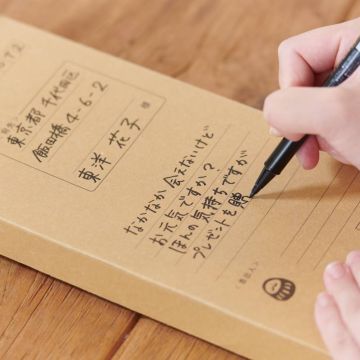 東京都千代田区
飯田橋4-6-2
東洋 花子 様
なかなか会えないけど
お元気ですか?
ほんの気持ちですが
プレゼントを贈